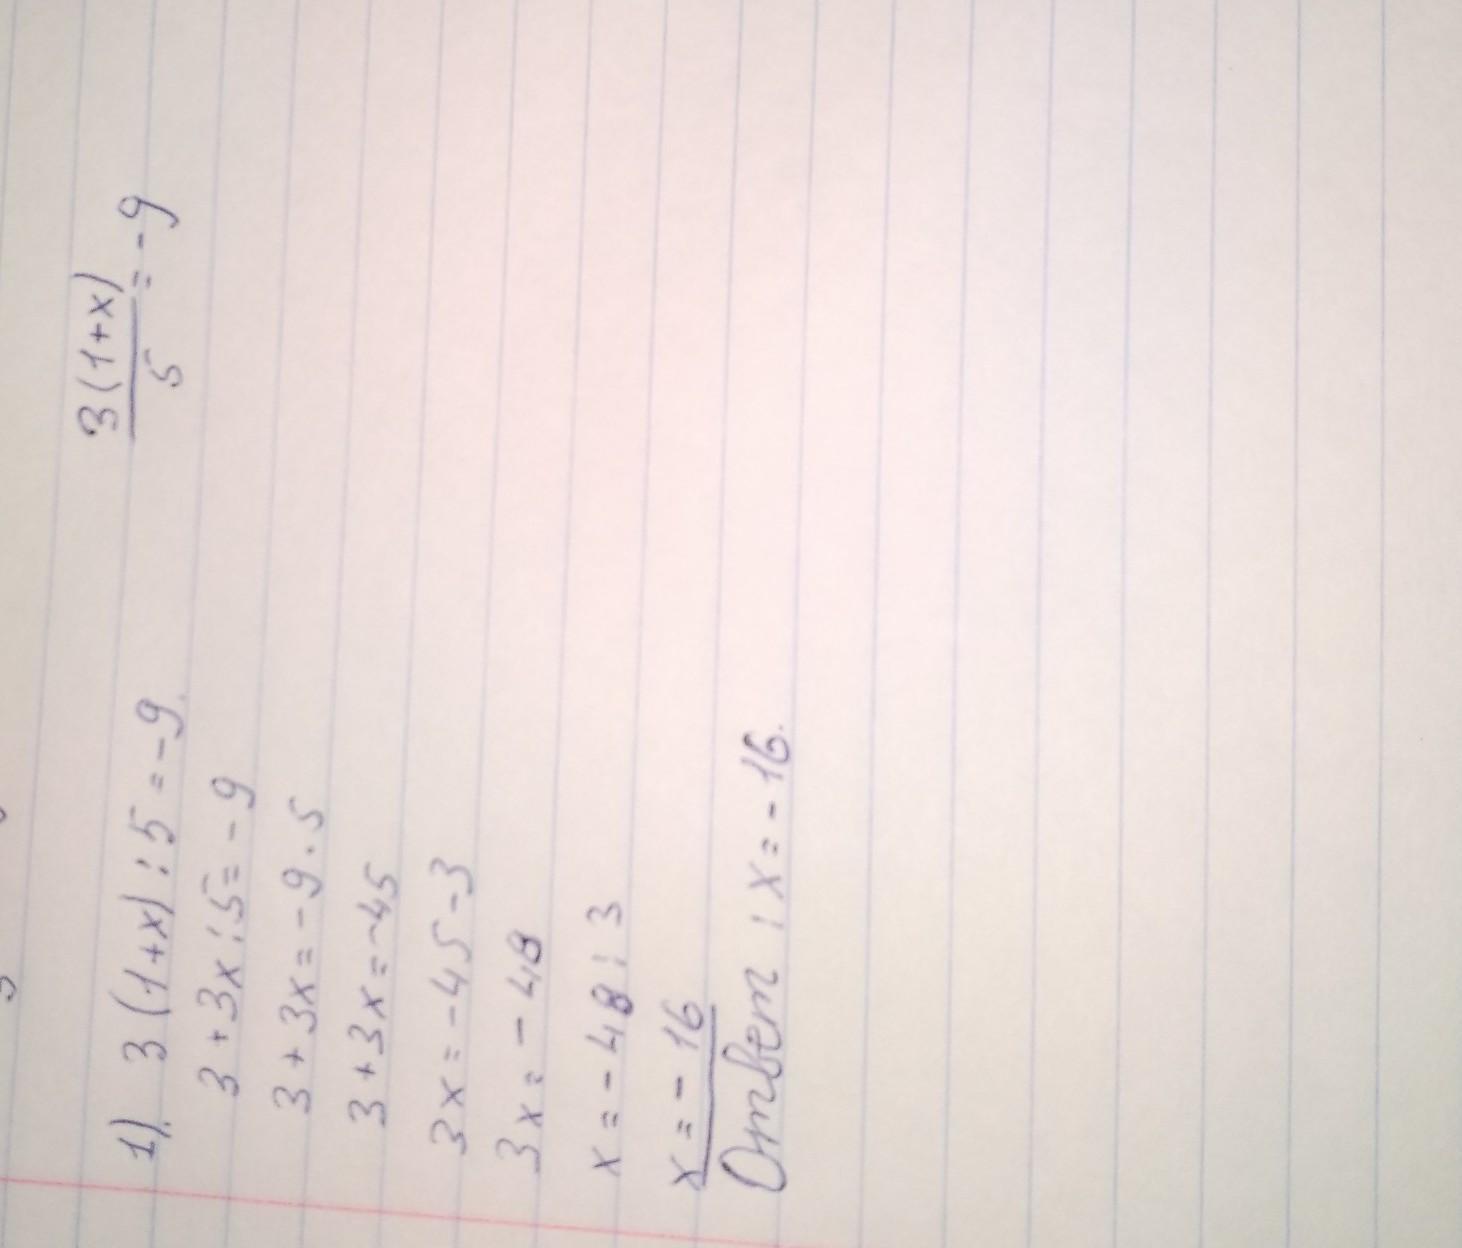 1). 3(1+x):5=-9.
3(1+x)/5=-9
3+3x:5=-9
3+3x=-9·5
3+3x=-45
3x=-45-3
3x=-48
x=-48:3
x=-16
Ответ: x=-16.